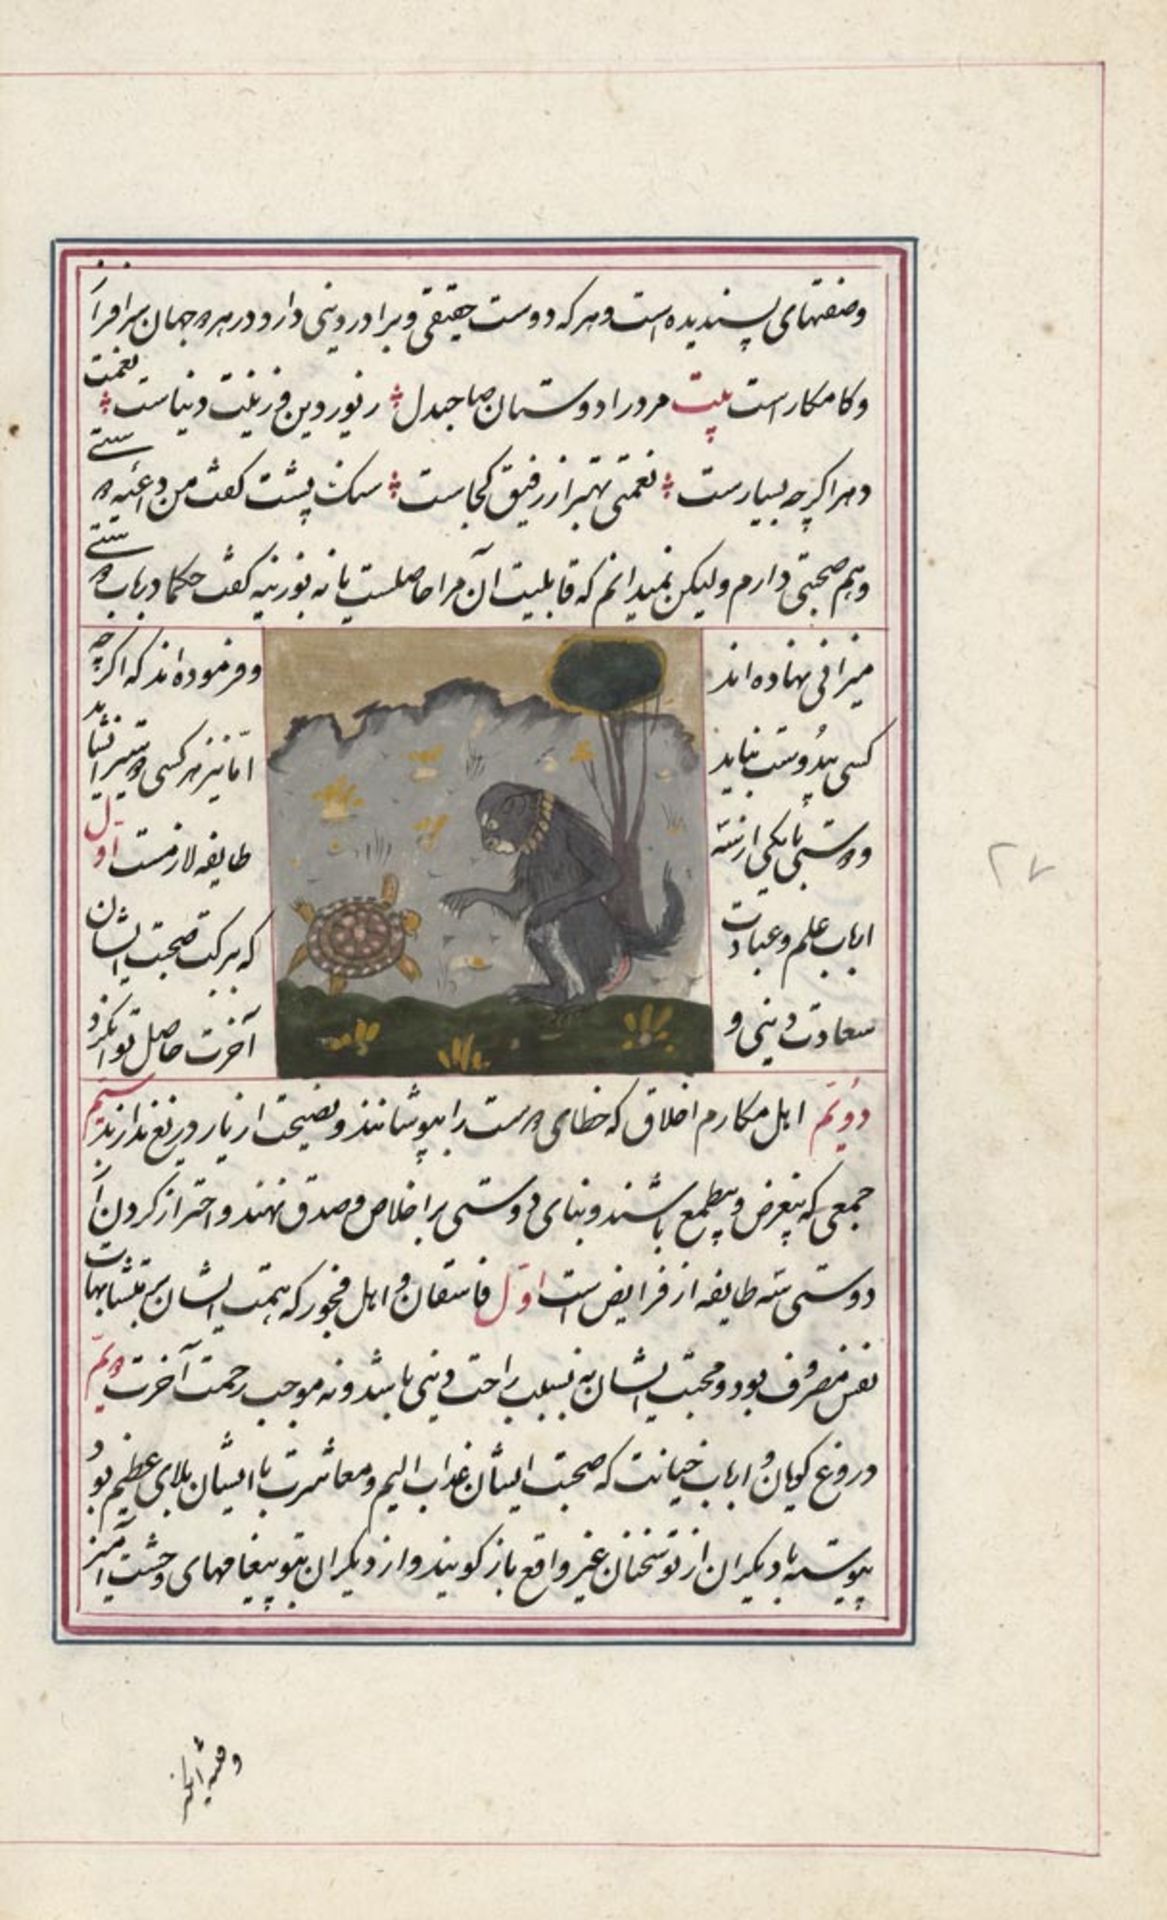 وصفتهای پسندیده است و هر که دوست حقیقی و برادر دینی دارد در هر دو جهان سرافراز
و کامکار است بیت مرد را دوستان صاحبدل ؞ زیور دین و زینت دنیاست ؞ نعمت
دهر اگرچه بسیارست ؞ نعمتی بهتر از رفیق کجاست ؞ سنک پشت کفت من داعیه دوستی
و هم صحبتی دارم ولیکن نمیدانم که قابلیت آن مرا حاصلست یا نه بوزینه کفت حکما در باب دوستی
میزانی نهاده اند و فرموده اند که اکرچه
کسی بیدوست نباید اما نیز هر کسی دوستی را نشاید
و دوستی با یکی از سه طایفه لازمست اول
ارباب علم و عبادت که ببرکت صحبت ایشان
سعادت دینی و آخرت حاصل توان کرد
دویم اهل مکارم اخلاق که خطای دوست را بپوشانند و نصیحت از یار دریغ ندارند سیم
جمعی که بیغرض و بیطمع باشند و بنای دوستی بر اخلاص و صدق نهند و احتراز کردن از
دوستی سه طایفه از فرایض است اول فاسقان و اهل فجور که همت ایشان بر مشتهیات
نفس مصروف بود و محبت ایشان نه سبب راحت دینی باشد و نه موجب رحمت آخرت دویم
دروغ کویان و ارباب خیانت که صحبت ایشان عذاب الیم و معاشرت با ایشان بلای عظیم بود
پیوسته با دیکران از تو سخنان غیر واقع باز کویند و از دیکران بتو پیغامهای وحشت آمیز
و فتنه انکیز
۲۷